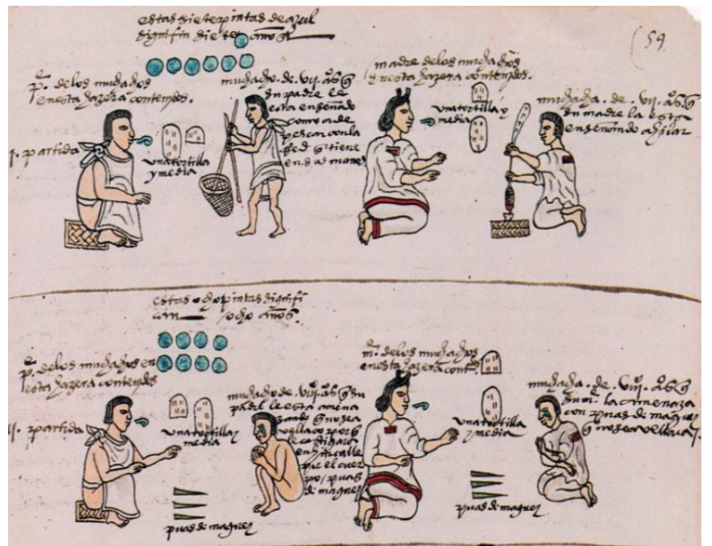 estas siete pintas de azul
signifīn siete años
59
pe. de los muchachos
en esta hazera contenydos.
muchacho. de. vii. aōs q
su padre le
esta enseñādo
como a de
pescar con la
red q tiene
en las manos
madre de los muchachos
en esta hazera contenydos.
muchacha. de. vii. aōs q
su madre la esta
enseñando a hilar
1. partida
una tortilla
y media
una tortilla y
media
estas ocho pintas signifi
can ocho años
pe. de los muchachos en
esta hazera contenydos
me. de los muchachos
en esta hazera contos.
muchacho de. viii. aōs q su
padre le esta amena
por el cuer
de maguei
muchacha. de. viii. aōs q
su me. la amenaza
con puas de maguei
partida
una tortilla y
media
una tortilla
y media
puas de maguei
puas de maguei